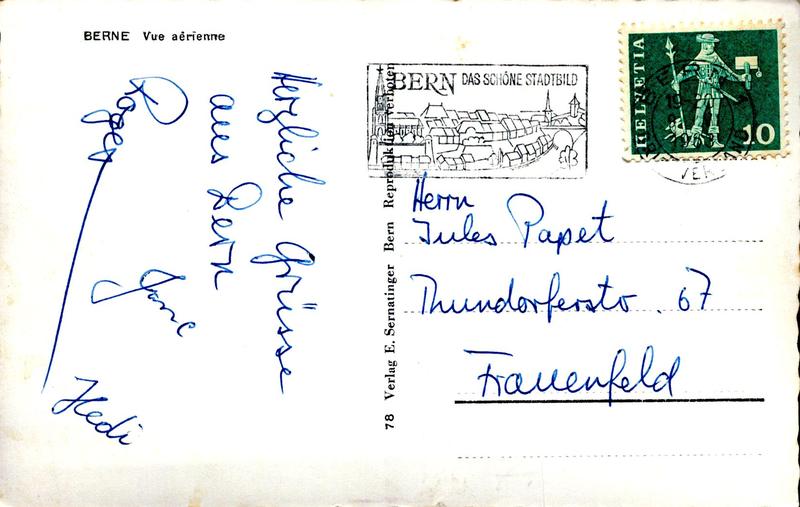 BERNE Vue aérienne
Herzliche Grüsse
aus Bern
Roger
Hedi
78 Verlag E. Sernatinger Bern Reproduktion verboten
BERN DAS SCHÖNE STADTBILD
HELVETIA
10
Herrn
Jules Papet
Thundorferstr. 67
Frauenfeld